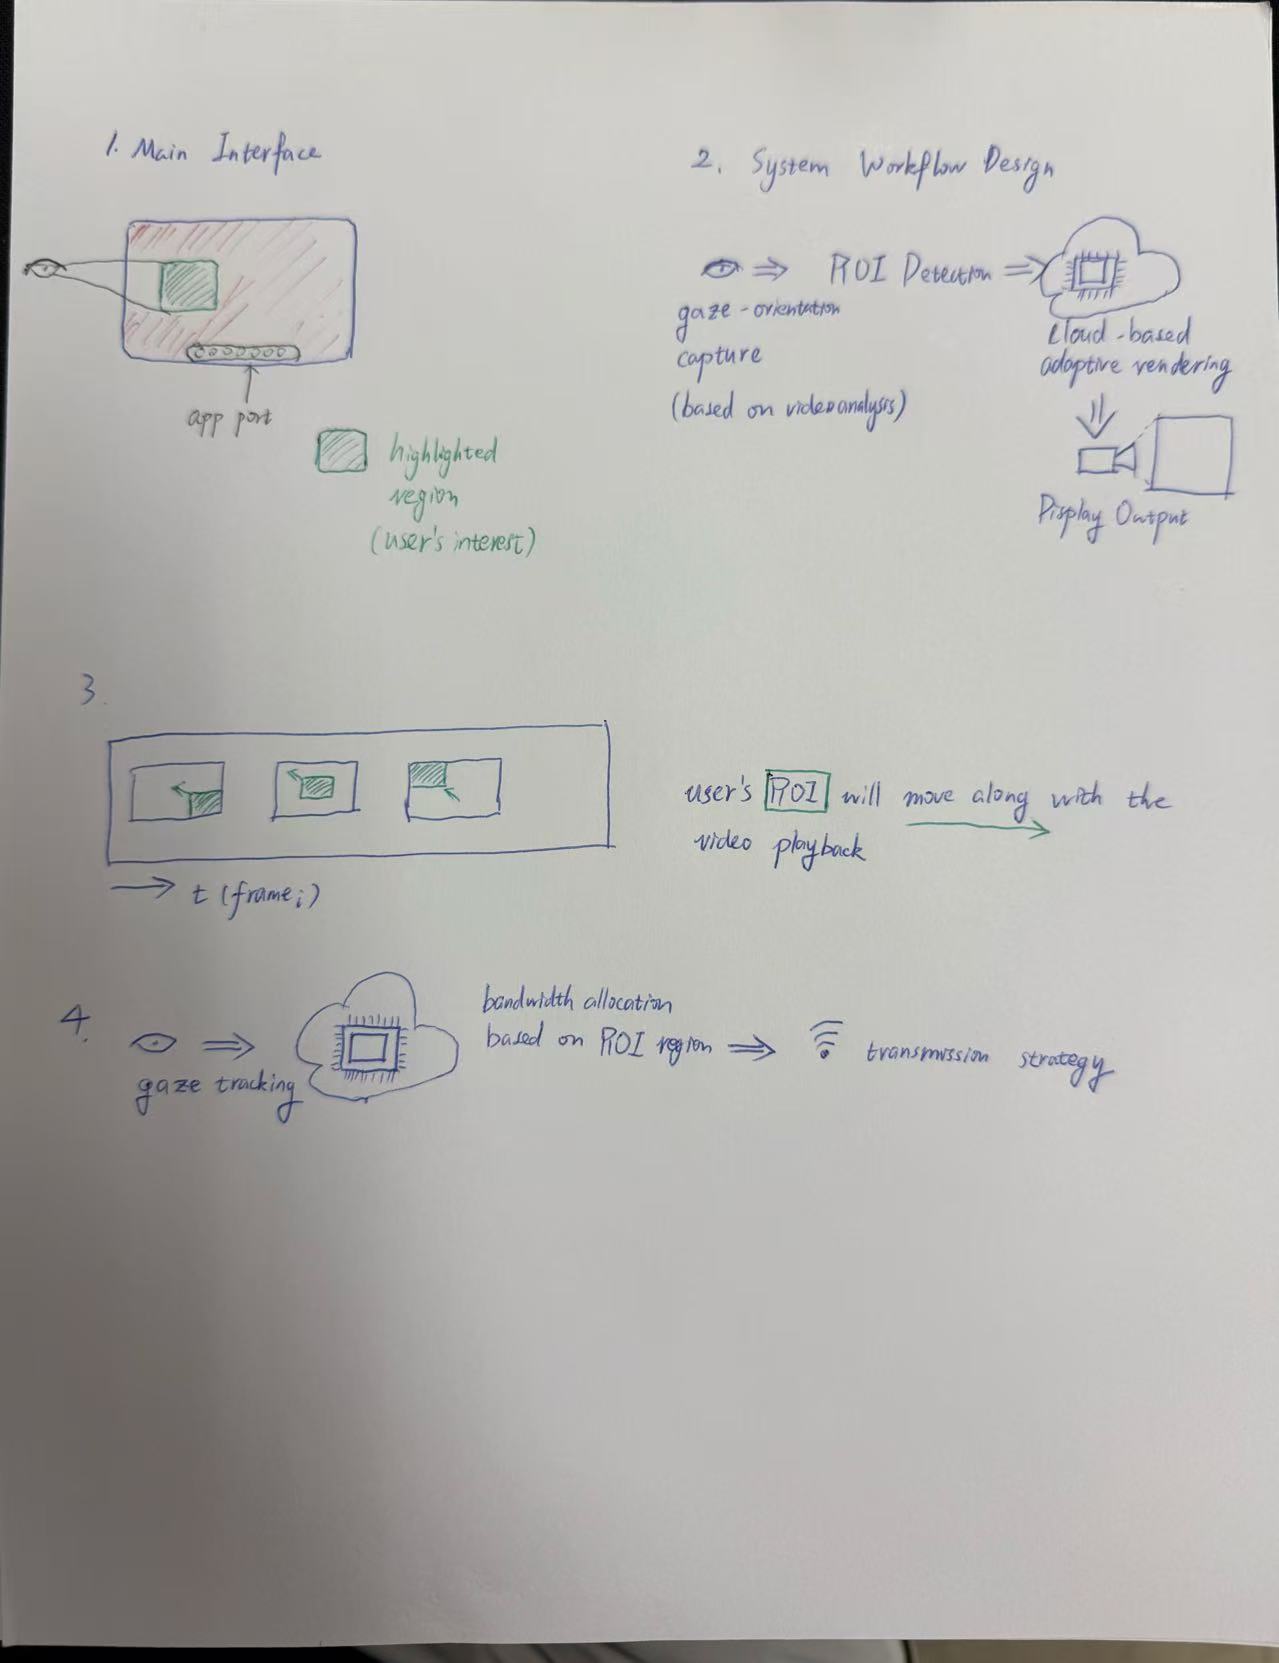 1. Main Interface
app port
highlighted
region
(user's interest)
2. System Workflow Design
ROI Detection
gaze-orientation
capture
(based on video analysis)
Cloud-based
adaptive rendering
Display Output
3.
t (frame i)
user's ROI will move along with the
video playback
4.
gaze tracking
bandwidth allocation
based on ROI region
transmission strategy